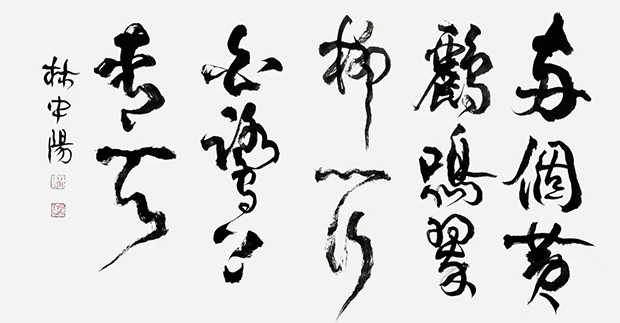 兩個黃
鸝鳴翠
柳一行
白鷺上
青天
林中陽